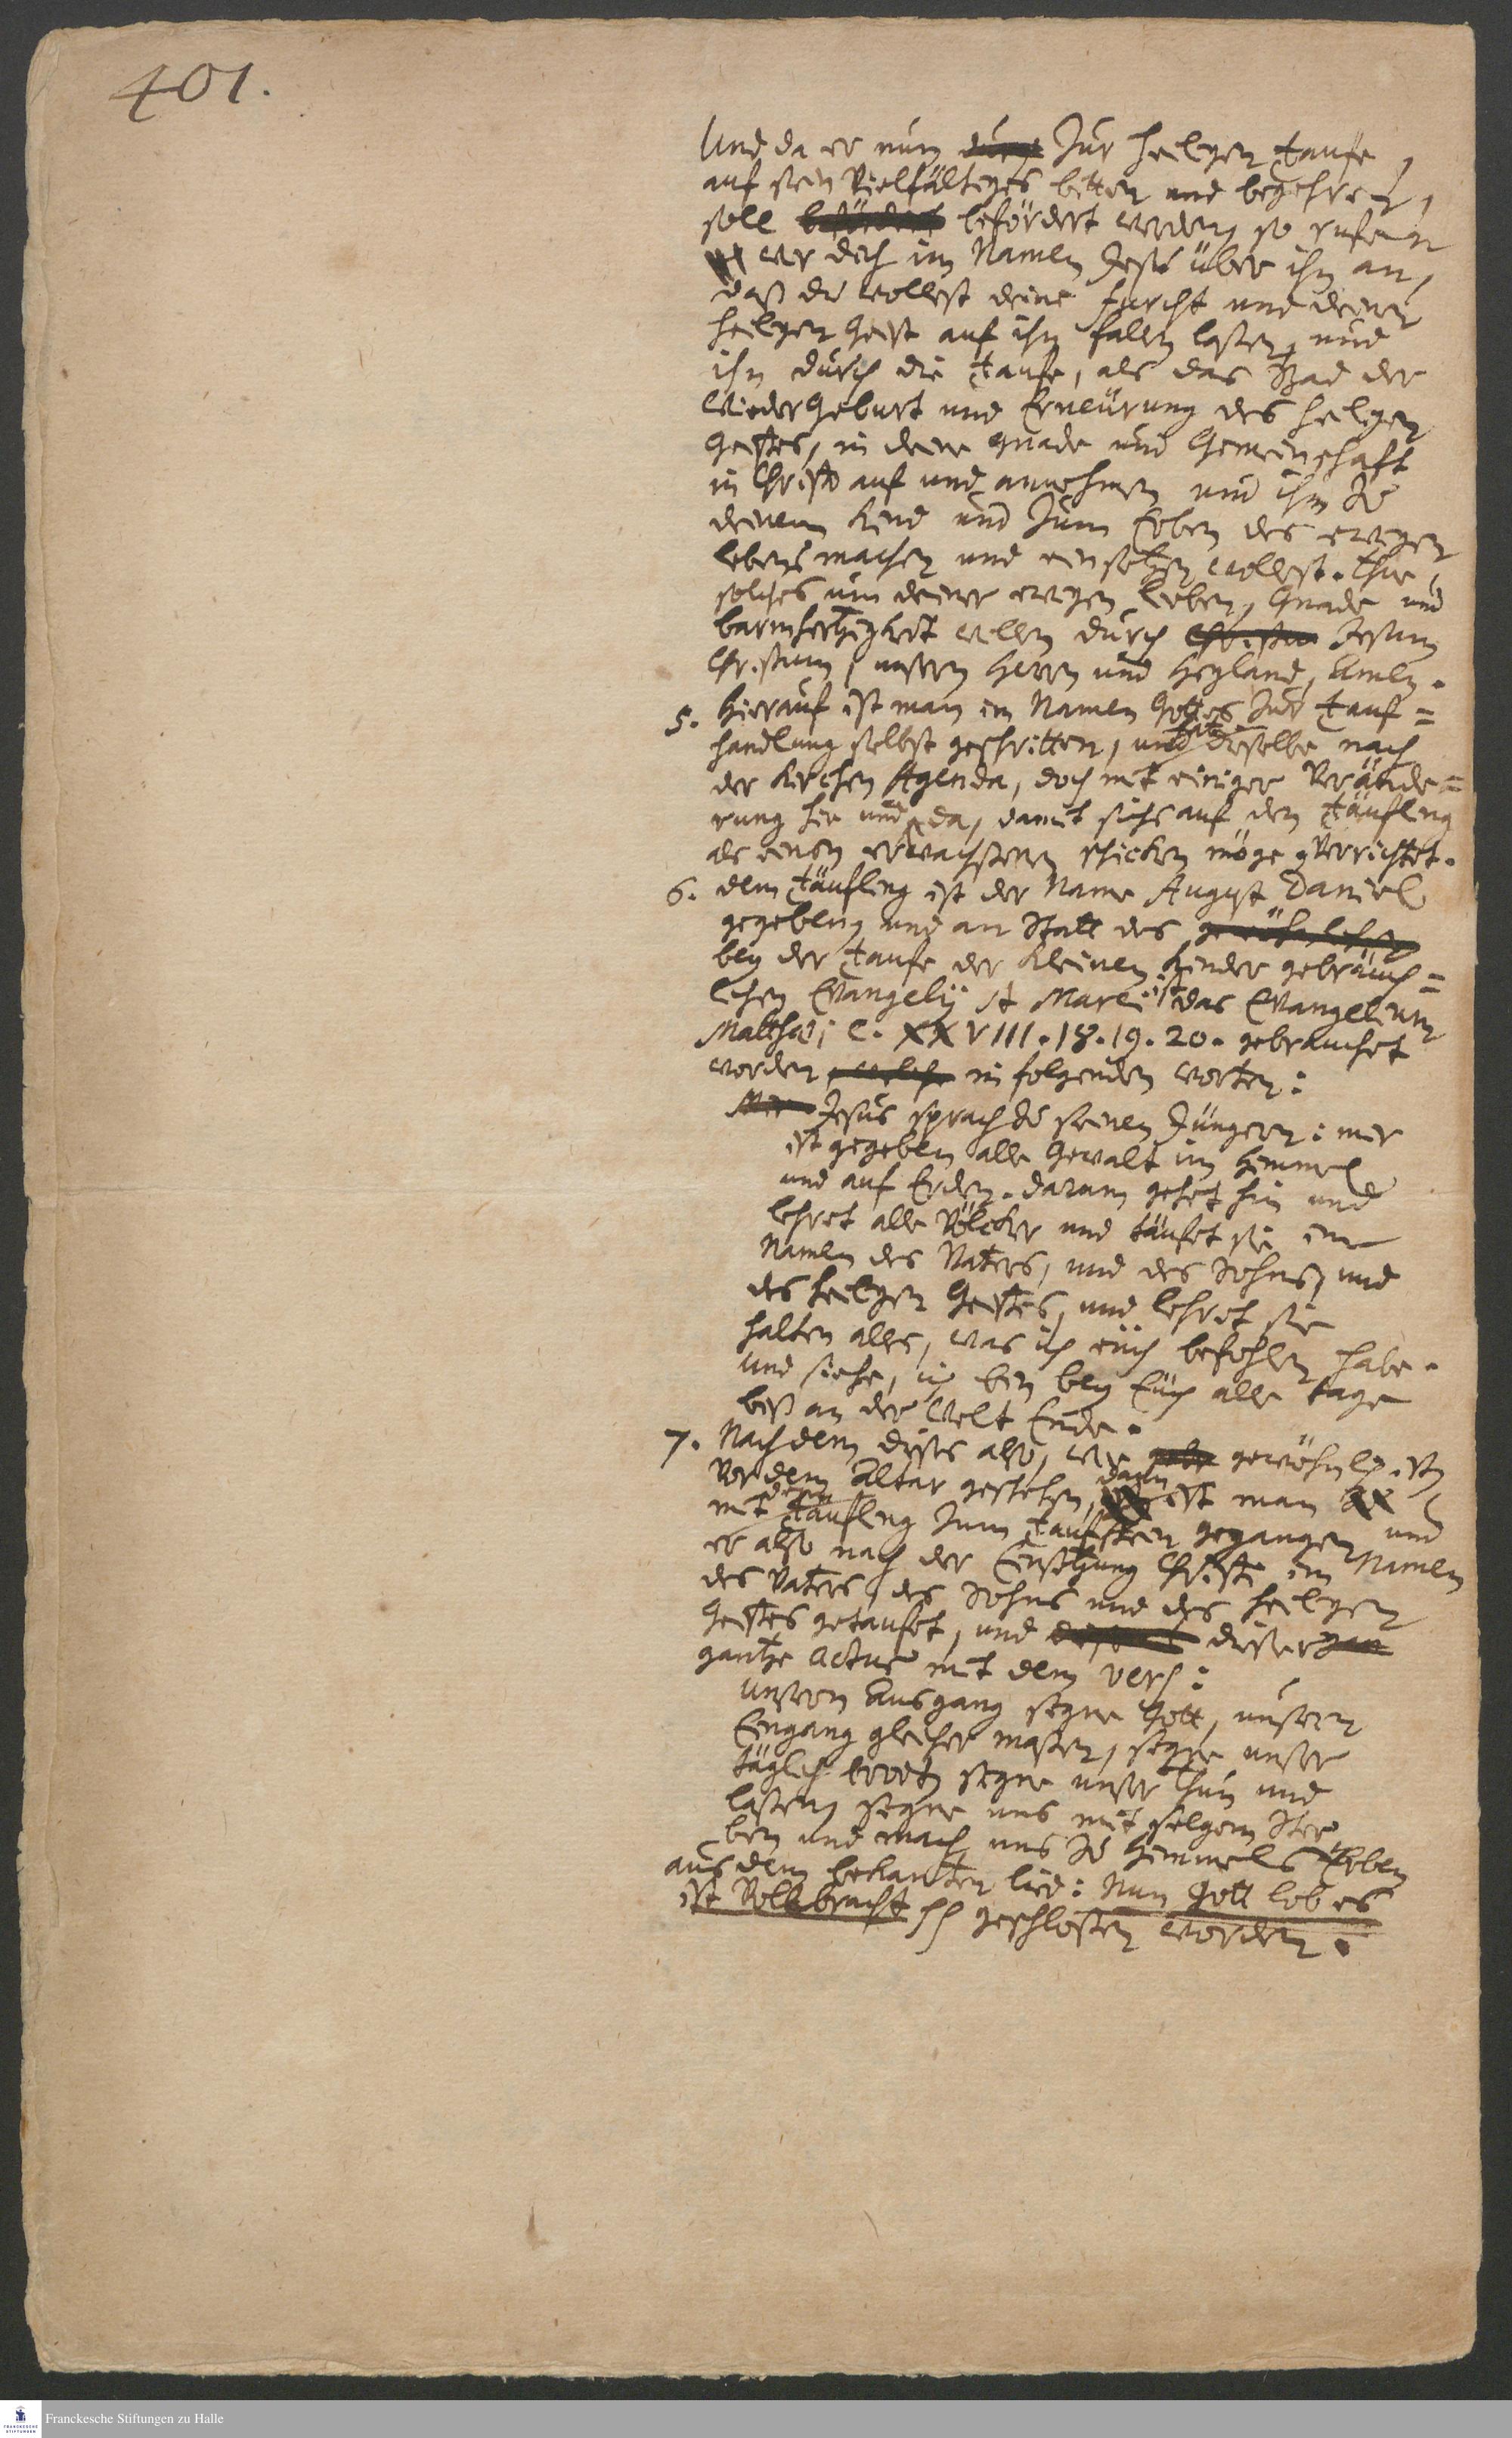 401.
Und da er nun durch zur heiligen Taufe,
auf sein vielfältiges bitten und begehren,
soll befördert befördert werden, so rufen
wir dich im Namen Jesu über ihn an,
daß du wollest deine furcht und deinen
heiligen Geist auf ihn fallen laßen, und
ihn durch die Taufe, als das Bad der
Wiedergeburt und Erneürung des heiligen
Geistes, in deine Gnade und Gemeinschaft
in Christo auf und annehmen und ihn zu
deinem Kind und zum Erben des ewigen
lebens machen und einsetzen wollest. Thue
solches um deiner ewigen Liebe, Gnade und
barmhertzigkeit willen durch Christum Jesum
Christum, unsern Herrn und Heyland, Amen.
5. Hierauf ist man im Namen Gottes zur Tauf=
handlung selbst geschritten, und hat dieselbe nach
der Kirchen Agenda, doch mit einiger Verände=
rung hie und da, damit sichs auf den Täufling
als einen erwachsenen schicken möge, verrichtet.
6. dem Täufling ist der Name August Daniel
gegeben, und an Statt des gewöhnlichen
bey der Taufe der Kleinen Kinder gebräuch=
lichen Evangelii St Marci ist das Evangelium
Matthæi C. XXVIII. 18. 19. 20. gebrauchet
worden, welche in folgenden worten:
Mir Jesus sprach zu seinen Jüngern: mir
ist gegeben alle Gewalt im Himmel
und auf Erden. darum gehet hin und
lehret alle Völcker und täufet sie im
Namen des Vaters, und des Sohns, und
des heiligen Geistes, und lehret sie
halten alles, was ich euch befohlen habe.
Und siehe, ich bin bey Euch alle tage
biß an der Welt Ende.
7. Nachdem dises also, wie gew gewöhnlich ist,
vor dem Altar geschehen, dann ist man
mit dem Täufling zum Taufstein gegangen und
er also nach der Einsetzung Christi im Namen
des Vaters, des Sohns und des heiligen
Geistes getaufet, und diser
gantze Actus mit dem Vers:
Unsern Ausgang segne Gott, unsern
Eingang gleicher maßen, segne unser
täglich brodt, segne unser Thun und
laßen, segne uns mit selgem Ster
ben und mach uns zu Himmels Erben
aus dem bekanten lied: Nun Gott lob es
ist Vollbracht geschloßen worden.
Franckesche Stiftungen zu Halle